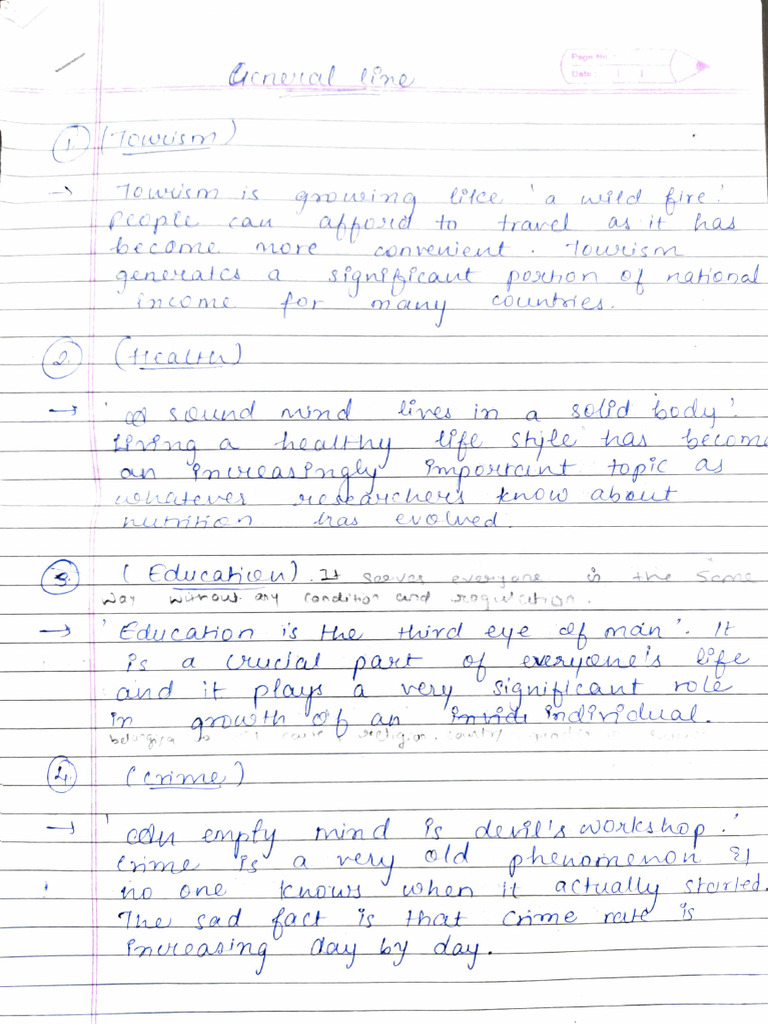 General line
Page No.
Date:
1. (Tourism)
→ Tourism is growing like 'a wild fire.'
People can afford to travel as it has
become more convenient. Tourism
generates a significant portion of national
income for many countries.
2. (Health)
→ 'a sound mind lives in a solid body'.
Living a healthy life style has become
an increasingly important topic as
whatever researchers know about
nutrition has evolved.
3. (Education). It serves everyone in the same
way without any condition and
→ 'Education is the third eye of man'. It
is a crucial part of everyone's life
and it plays a very significant role
in growth of an individual.
religion, country
4. (Crime)
→ 'An empty mind is devil's workshop.'
Crime is a very old phenomenon &
no one knows when it actually started.
The sad fact is that crime rate is
increasing day by day.